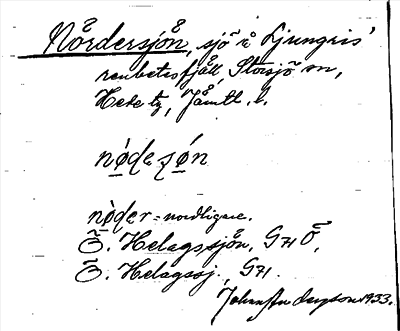 Nårdersjön, sjö å Ljungris'
renbetesfjäll Storsjö sn,
Hede tg, Jämtl. l.
nødesøn
nøder = nordligare.
Ö. Helagssjön, G71 Ö,
Ö. Helagssj. G71.
1933.